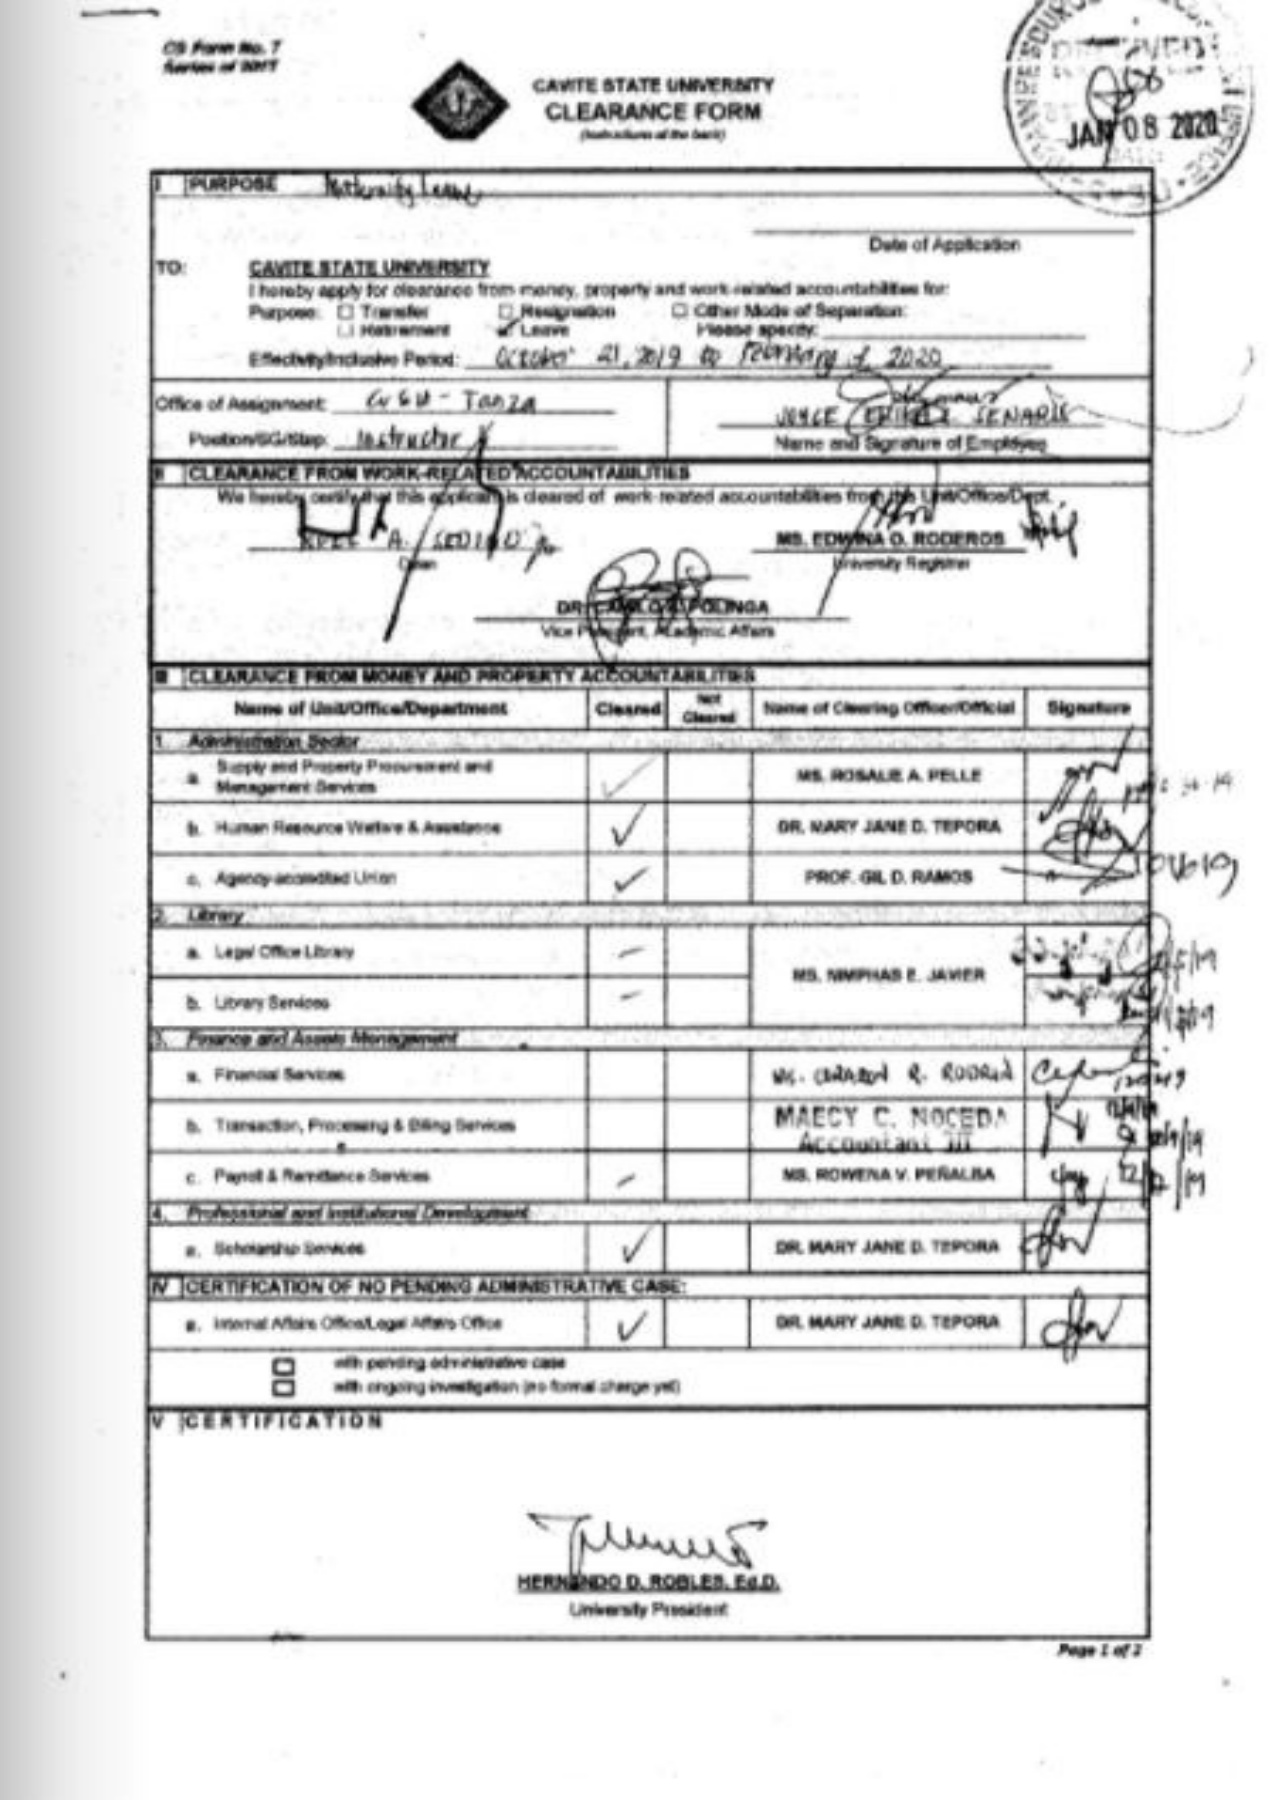 CS Form No. 7
Series of 2017
CAVITE STATE UNIVERSITY
CLEARANCE FORM
(Instructions at the back)
JAN 08 2020
I PURPOSE Maternity Leave
Date of Application
TO: CAVITE STATE UNIVERSITY
I hereby apply for clearance from money, property and work-related accountabilities for:
Purpose: Transfer Resignation Other Mode of Separation:
Retirement Leave Please specify:
Effectivity/Inclusive Period: October 21, 2019 to February 2020
Office of Assignment: CvSU - Tanza
JOYCE SENARIS
Position/SG/Step: Instructor
Name and Signature of Employee
II CLEARANCE FROM WORK-RELATED ACCOUNTABILITIES
We hereby certify that this applicant is cleared of work-related accountabilities from this Unit/Office/Dept.
A.
MS. EDWINA O. RODEROS
Dean
University Registrar
DR. CAMILO POLINGA
Vice President, Academic Affairs
III CLEARANCE FROM MONEY AND PROPERTY ACCOUNTABILITIES
Name of Unit/Office/Department Cleared Not Cleared Name of Clearing Officer/Official Signature
1. Administration Sector
a. Supply and Property Procurement and Management Services MS. ROSALIE A. PELLE
b. Human Resource Welfare & Assistance DR. MARY JANE D. TEPORA
c. Agency-accredited Union PROF. GIL D. RAMOS
2. Library
a. Legal Office Library
MS. NIMPHAS E. JAVIER
b. Library Services
3. Finance and Assets Management
a. Financial Services
b. Transaction, Processing & Billing Services MAECY C. NOCEDA
Accountant III
c. Payroll & Remittance Services MS. ROWENA V. PEÑALBA
4. Professional and Institutional Development
a. Scholarship Services DR. MARY JANE D. TEPORA
IV CERTIFICATION OF NO PENDING ADMINISTRATIVE CASE:
a. Internal Affairs Office/Legal Affairs Office DR. MARY JANE D. TEPORA
with pending administrative case
with ongoing investigation (no formal charge yet)
V CERTIFICATION
HERNANDO D. ROBLES, Ed.D.
University President
Page 1 of 2